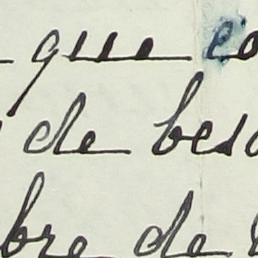 que co
de beso
bre de